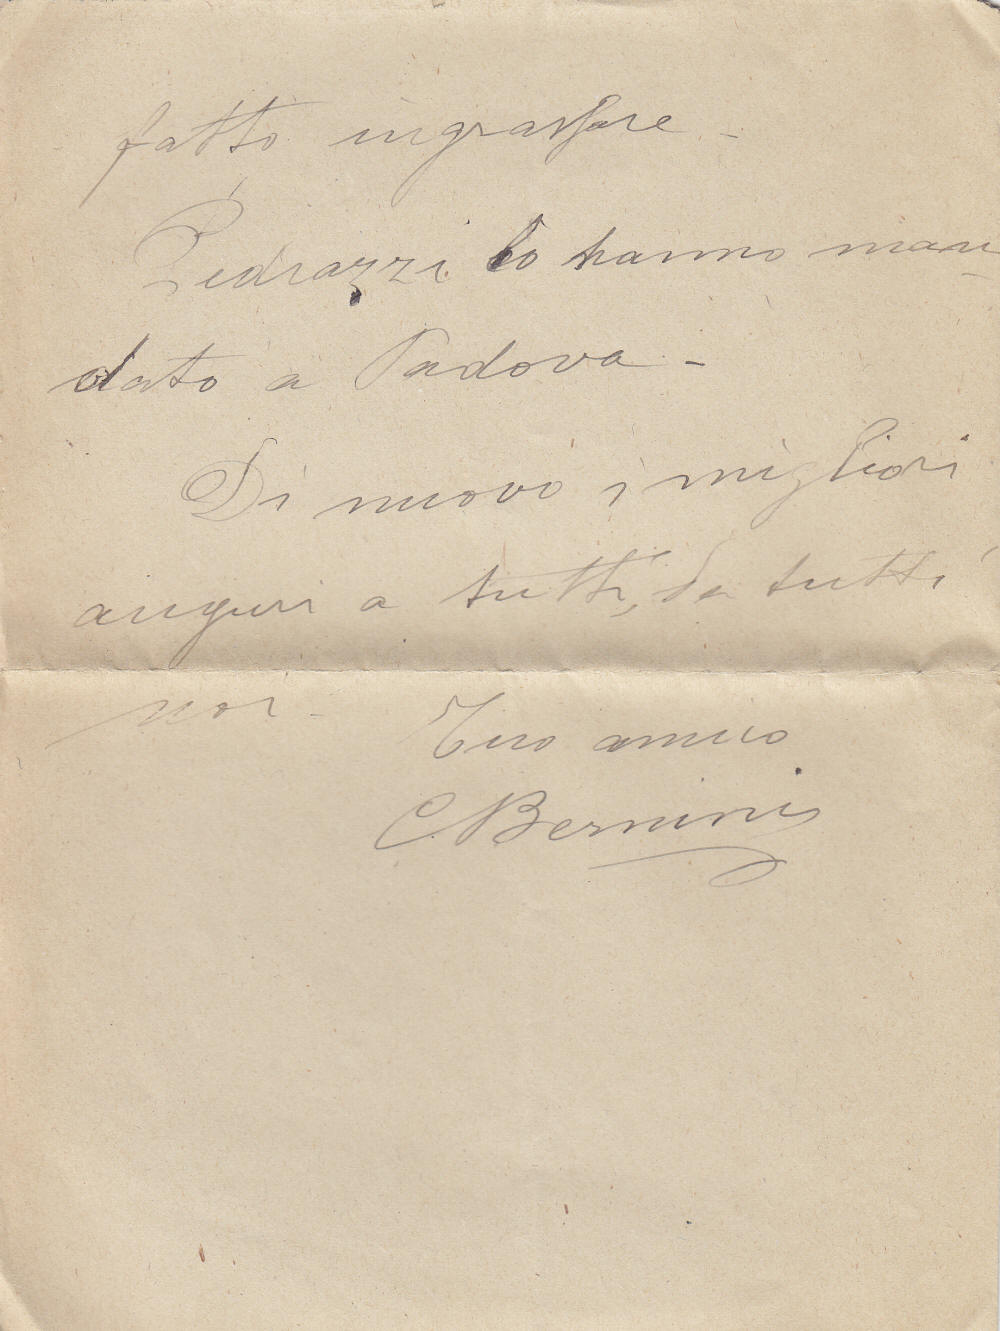 fatto ingrassare -
Pedrazzi lo hanno man
dato a Padova -
Di nuovo i migliori
auguri a tutti, da tutti
noi -
Tuo amico
C. Bernini